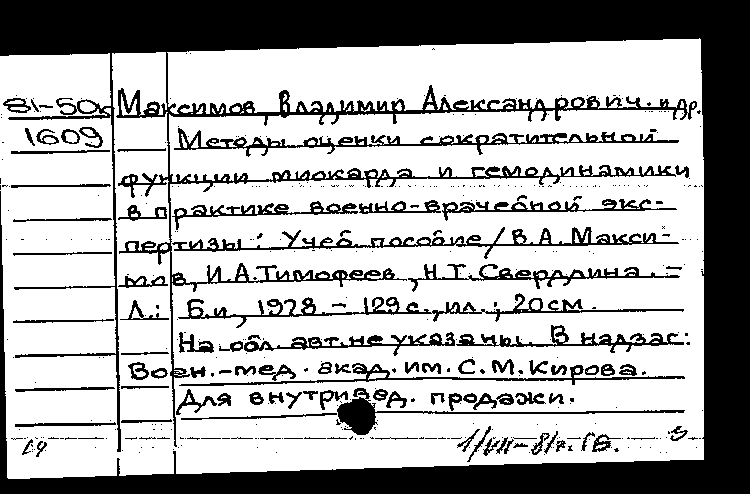 81-50к Максимов, Владимир Александрович. и др.
1609 Методы оценки сократительной
функции миокарда и гемодинамики
в практике военно-врачебной экс-
пертизы: Учеб. пособие / В.А. Макси-
мов, И.А. Тимофеев, Н.Т. Свердлина. -
Л.: Б.и, 1978. - 129 с., ил.; 20 см.
На обл. авт. не указаны. В надзаг:
Воен.-мед. акад. им. С.М. Кирова.
Для внутривед. продажи.